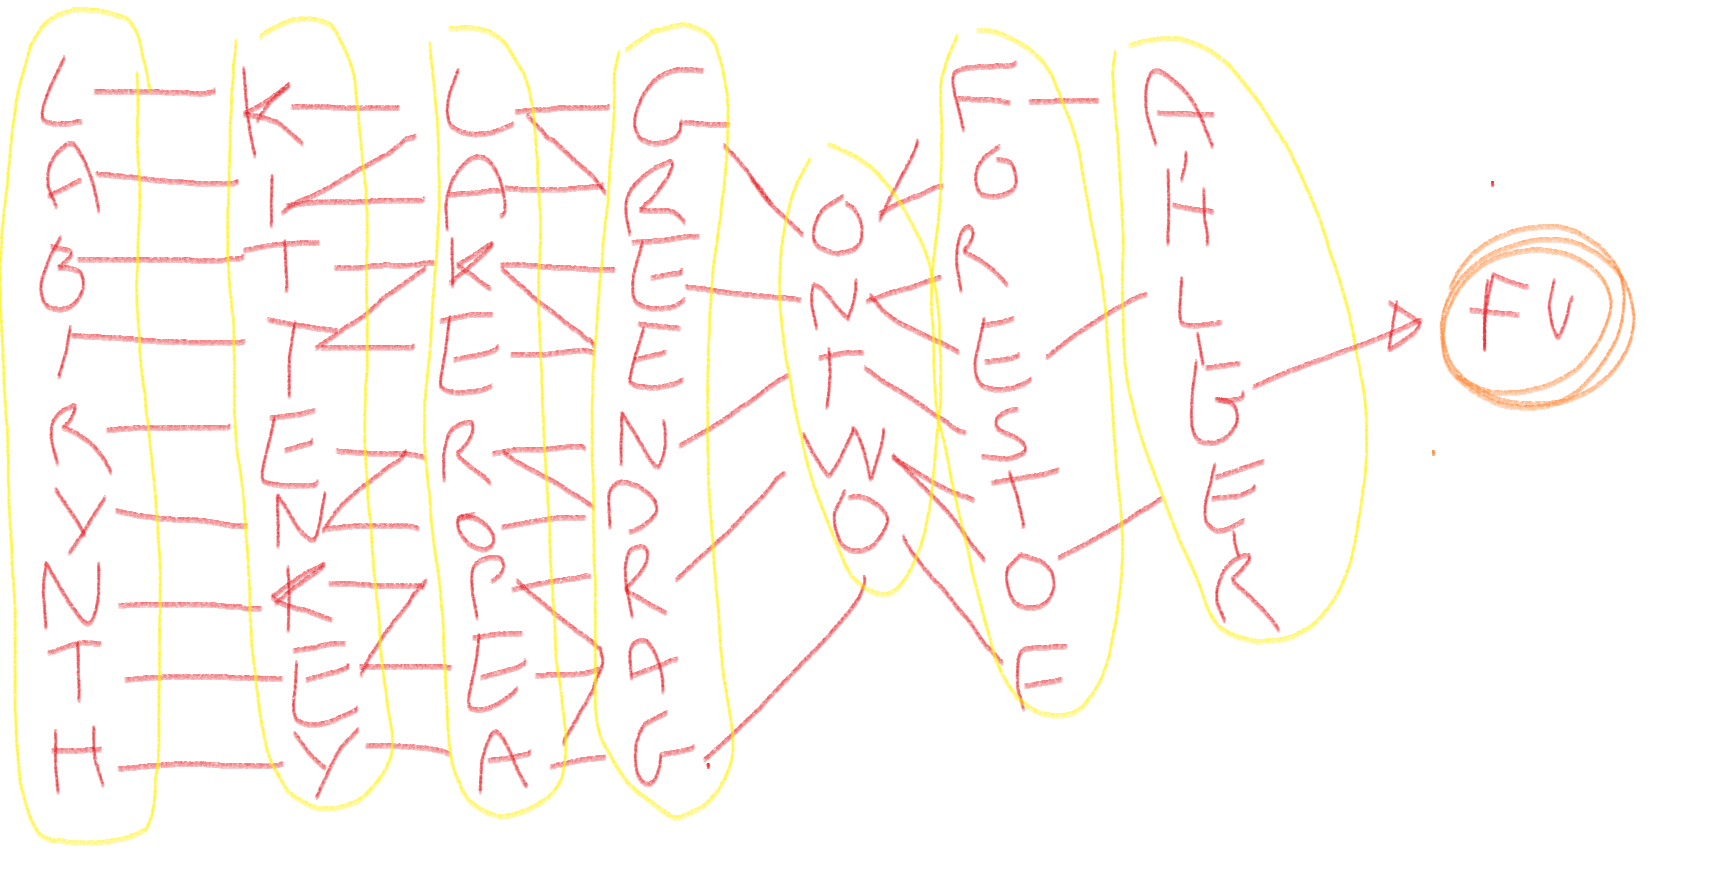 LABIRYNTH
KITTENKEY
LAKEROPEA
GREENDRAG
ONTWO
FORESTOF
AHLGER
FV